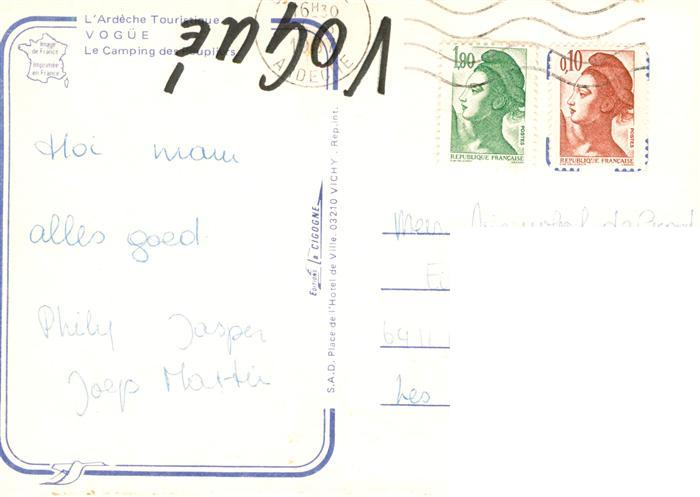 L'Ardèche Touristique
VOGÜE
Le Camping des Peupliers
Image
de France
Imprimée
en France
16H30
ARDECHE
Vogüé
1,80
POSTES
REPUBLIQUE FRANÇAISE
0,10
POSTES
REPUBLIQUE FRANÇAISE
Hoi mam
alles goed
Philip Jasper
Joep Martin
EDITIONS La CIGOGNE
S.A.D. Place de l'Hotel de Ville. 03210 VICHY. Rep.int.
6411